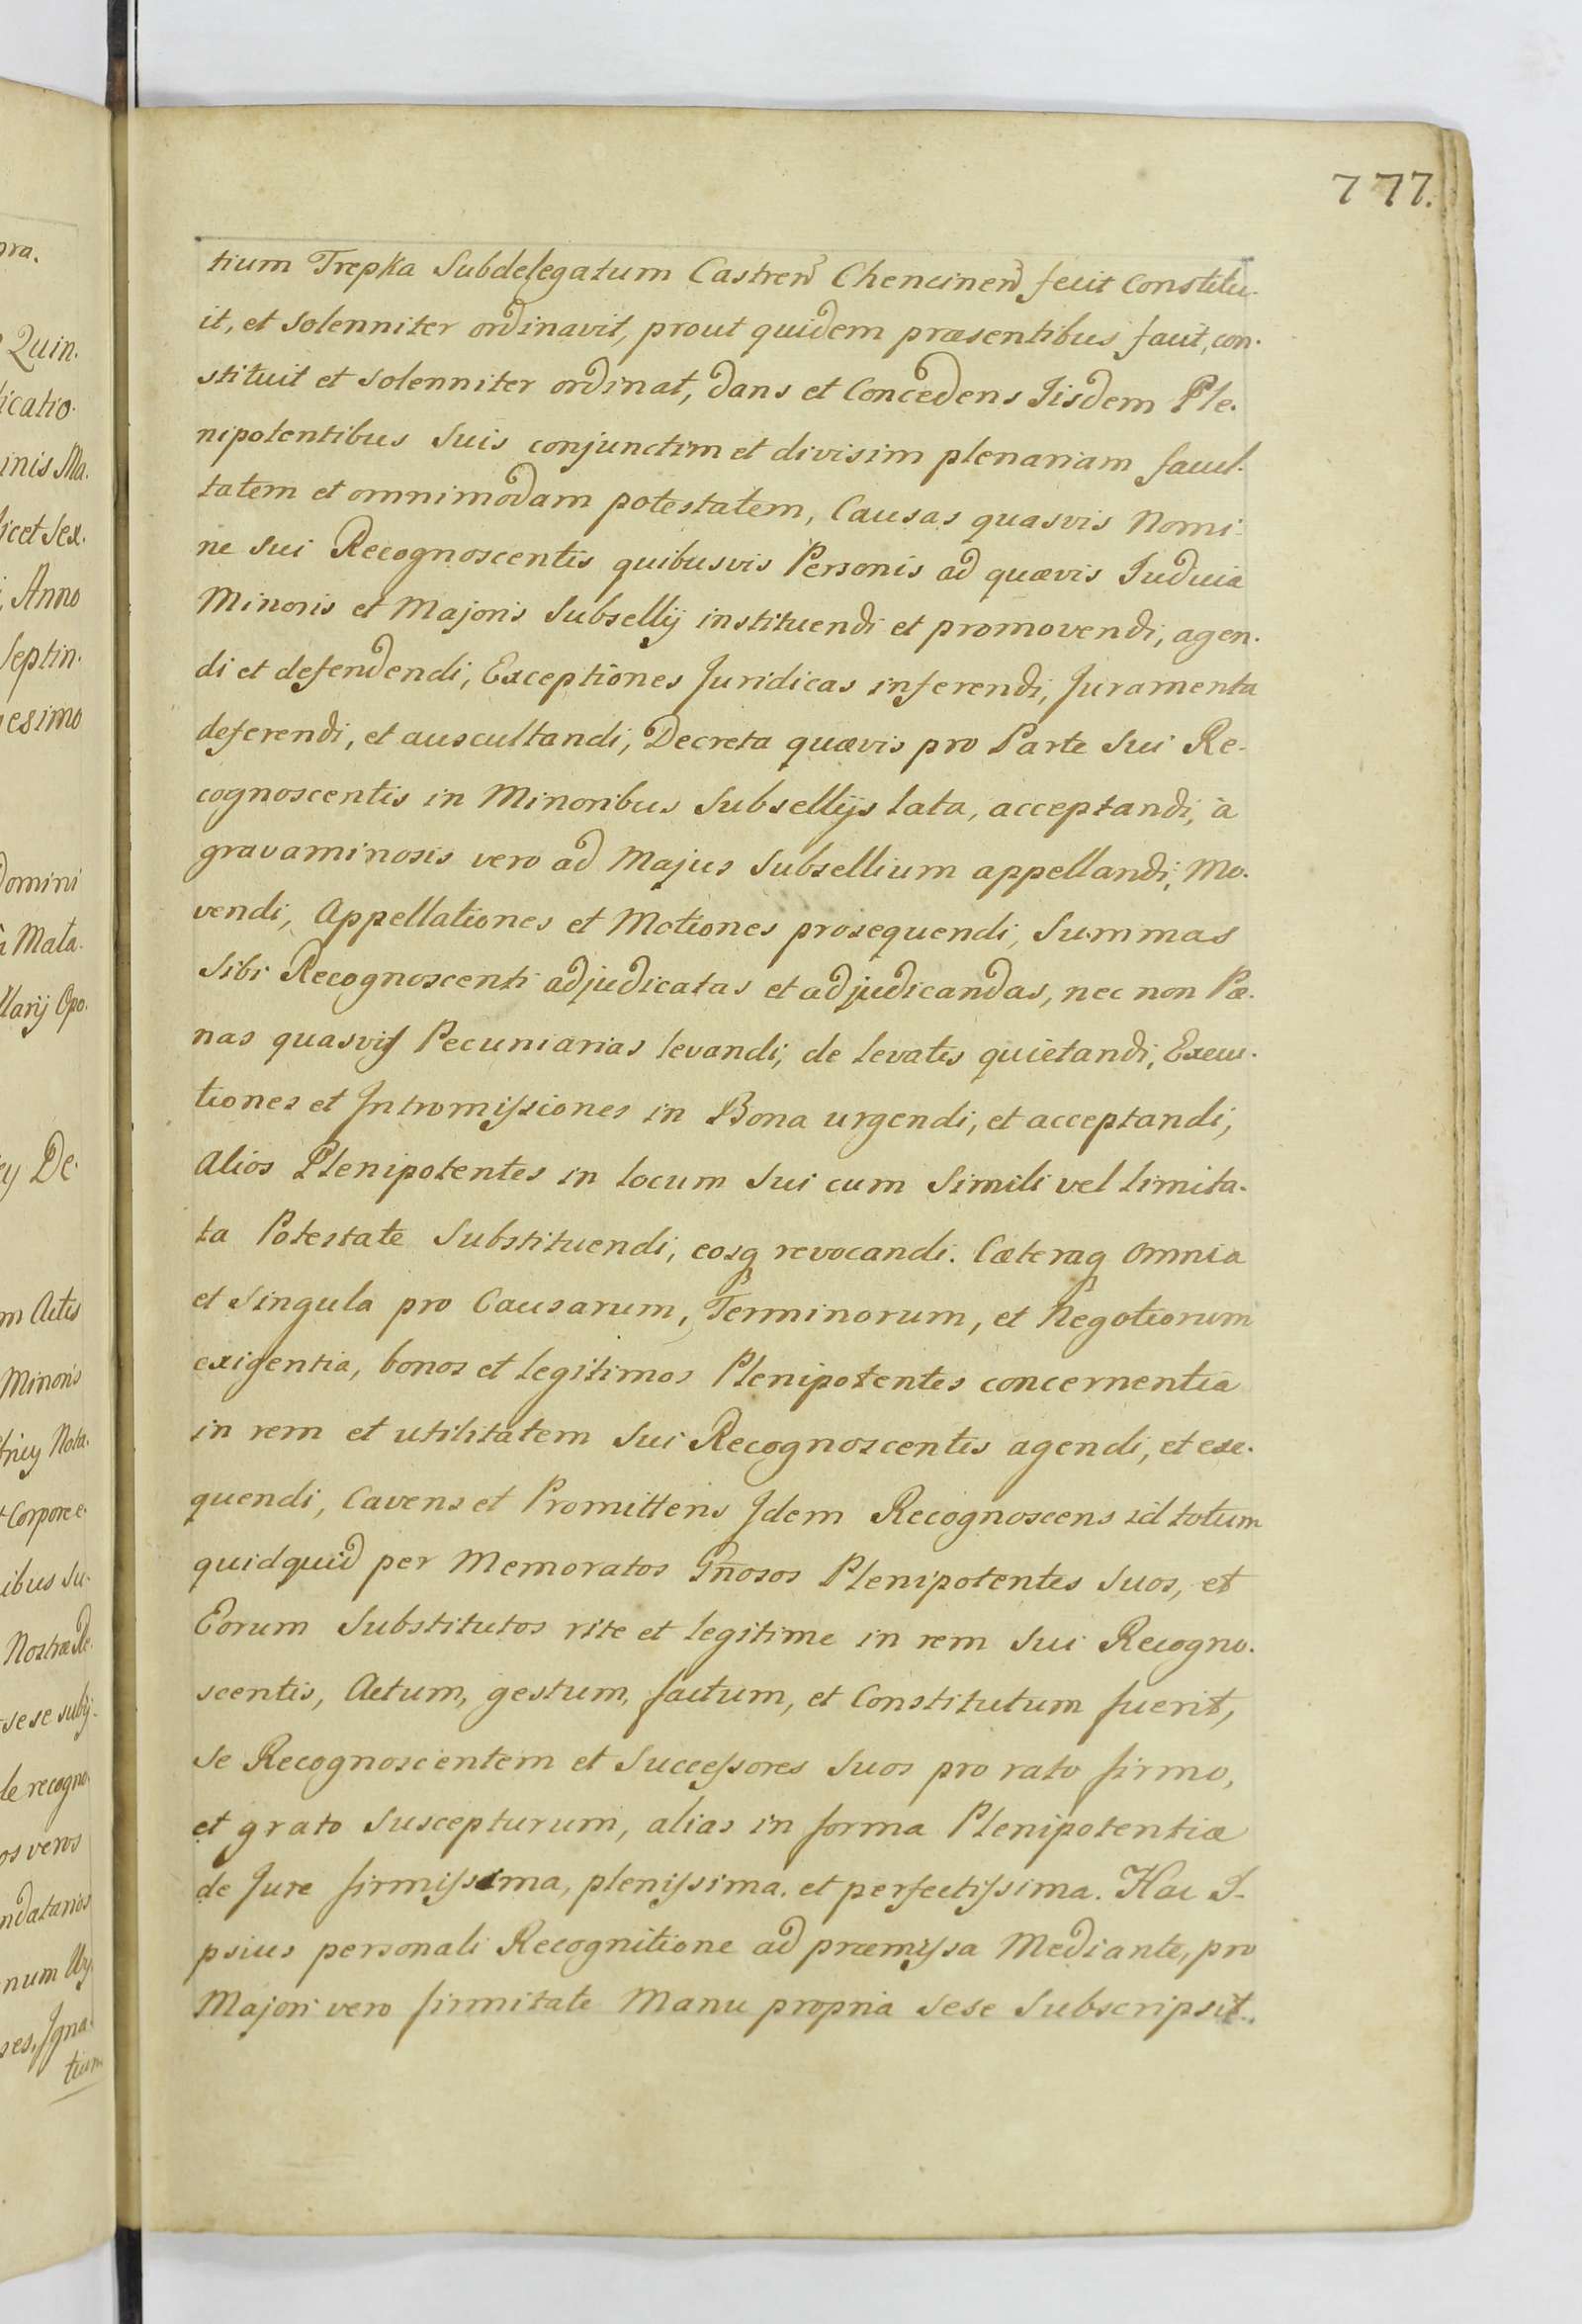 777.
tium Trepka Subdelegatum Castren Chencinen fecit Constitu-
it, et Solenniter ordinavit, prout quidem præsentibus facit, con-
stituit et Solenniter ordinat, dans et Concedens Iisdem Ple-
nipotentibus Suis conjunctim et divisim plenariam facul-
tatem et omnimodam potestatem, Causas quasvis Nomi-
ne Sui Recognoscentis quibusvis Personis ad quævis Judicia
Minoris et Majoris Subsellij instituendi et promovendi, agen-
di et defendendi, Exceptiones Juridicas inferendi, Juramenta
deferendi, et auscultandi, Decreta quævis pro Parte Sui Re-
cognoscentis in Minoribus Subsellijs lata, acceptandi, à
gravaminosis vero ad Majus Subsellium appellandi, Mo-
vendi, Appellationes et Motiones prosequendi, Summas
Sibi Recognoscenti adjudicatas et adjudicandas, nec non Pæ-
nas quasvis Pecuniarias levandi, de levatis quietandi, Execu-
tiones et Intromissiones in Bona urgendi, et acceptandi,
Alios Plenipotentes in locum Sui cum Simili vel limita-
ta Potestate Substituendi, eosq revocandi. Cæteraq Omnia
et Singula pro Causarum, Terminorum, et Negotiorum
exigentia, bonos et legitimos Plenipotentes concernentia
in rem et utilitatem Sui Recognoscentis agendi, et exe-
quendi, Cavens et Promittens Idem Recognoscens id totum
quidquid per Memoratos Gnosos Plenipotentes Suos, et
Eorum Substitutos rite et legitime in rem Sui Recogno-
scentis, Actum, gestum, factum, et Constitutum fuerit,
Se Recognoscentem et Successores Suos pro rato firmo,
et grato Suscepturum, alias in forma Plenipotentiæ
de Jure firmissima, plenissima, et perfectissima. Hac I-
psius personali Recognitione ad præmissa Mediante, pro
Majori vero firmitate Manu propria Sese Subscripsit.